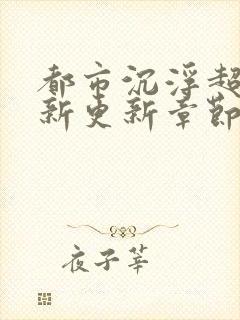 都市沉浮超
新更新章節
夜子莘